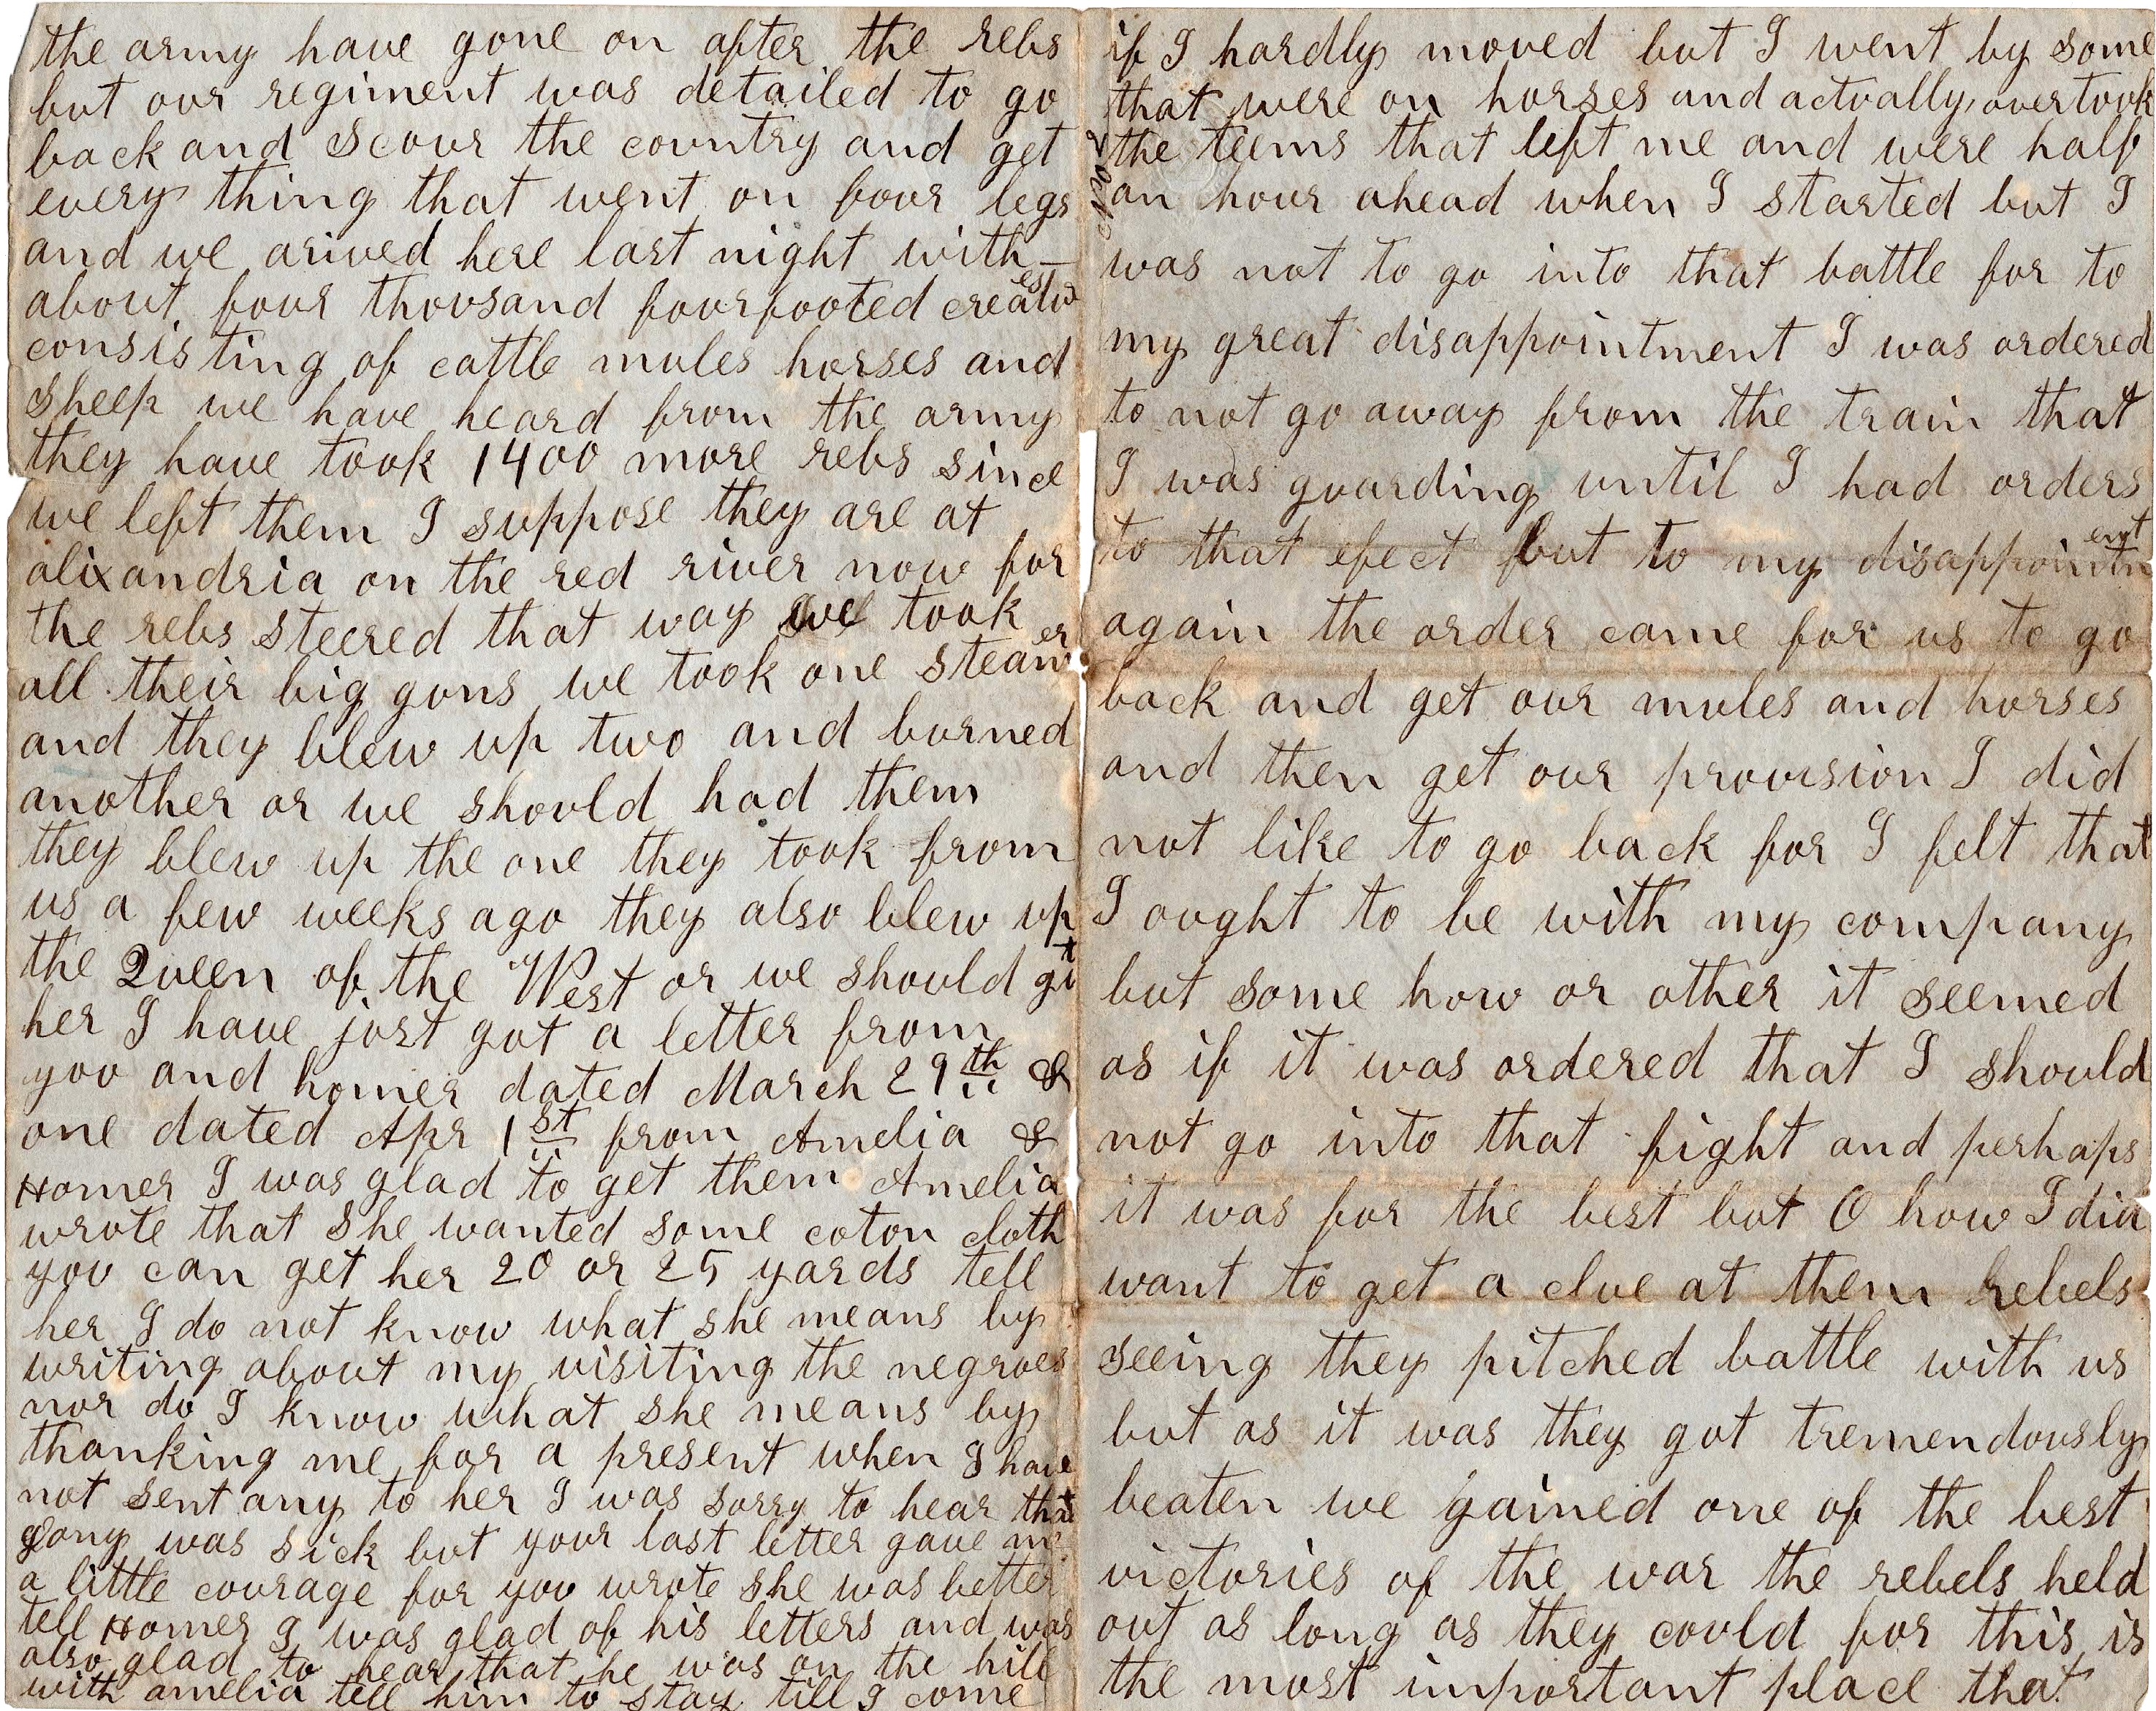 the army have gone on after the rebs
but our regiment was detailed to go
back and scour the country and get
every thing that went on four legs
and we arived here last night with
about four thousand fourfooted creatures
consisting of cattle mules horses and
sheep we have heard from the army
they have took 1400 more rebs since
we left them I suppose they are at
alixandria on the red river now for
the rebs steered that way we took
all their big guns we took one steamer
and they blew up two and burned
another or we should had them
they blew up the one they took from
us a few weeks ago they also blew up
the Queen of the West or we should got
her I have just got a letter from
you and homer dated March 29th &
one dated Apr 1st from Amelia &
Homer I was glad to get them Amelia
wrote that she wanted some coton cloth
you can get her 20 or 25 yards tell
her I do not know what she means by
writing about my visiting the negroes
nor do I know what she means by
thanking me for a present when I have
not sent any to her I was sorry to hear that
was sick but your last letter gave me
a little courage for you wrote she was better
tell Homer I was glad of his letters and was
also glad to hear that he was on the hill
with amelia tell him to stay till I come
if I hardly moved but I went by some
that were on horses and actually overtook
the teems that left me and were half
an hour ahead when I started but I
was not to go into that battle for to
my great disappointment I was ordered
to not go away from the train that
I was guarding until I had orders
to that efect but to my disappointment
again the order came for us to go
back and get our mules and horses
and then get our provision I did
not like to go back for I felt that
I ought to be with my company
but some how or other it seemed
as if it was ordered that I should
not go into that fight and perhaps
it was for the best but O how I did
want to get a clue at them rebels
seeing they pitched battle with us
but as it was they got tremendously
beaten we gained one of the best
victories of the war the rebels held
out as long as they could for this is
the most important place that